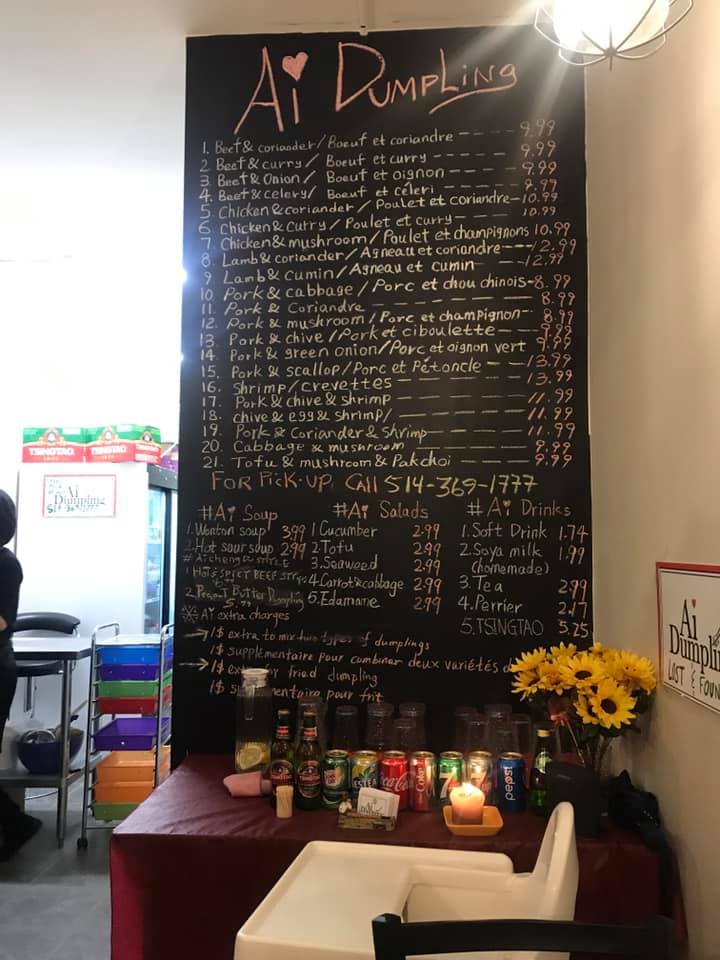 Ai Dumpling
1. Beef & coriander / Boeuf et coriandre ---- 9.99
2 Beef & curry / Boeuf et curry ----- 9.99
3. Beef & Onion / Boeuf et oignon ---- 9.99
4. Beef & celery / Boeuf et céleri ---- 9.99
5. Chicken & coriander / Poulet et coriandre - 10.99
6. Chicken & curry / Poulet et curry --- 10.99
7. Chicken & mushroom / Poulet et champignons 10.99
8. Lamb & coriander / Agneau et coriandre --- 12.99
9 Lamb & cumin / Agneau et cumin ---- 12.99
10. Pork & cabbage / Porc et chou chinois - 8.99
11. Pork & Coriandre -------- 8.99
12. Pork & mushroom / Porc et champignon -- 8.99
13. Pork & chive / Pork et ciboulette ---- 9.99
14. Pork & green onion / Porc et oignon vert 9.99
15. Pork & scallop / Porc et Pétoncle --- 13.99
16. Shrimp / crevettes ------- 13.99
17. Pork & chive & shrimp ------ 11.99
18. chive & egg & shrimp / ------ 11.99
19. Pork & Coriander & Shrimp ----- 11.99
20. Cabbage & mushroom ------ 9.99
21. Tofu & mushroom & Pakchoi ----- 9.99
FOR Pick-UP. CAll 514-369-1777
#Ai Soup
1. Wonton soup 3.99
2. Hot sour soup 2.99
1 Hot & SPICY BEEF
2. Peanut Butter Dumpling
5.99
Ai extra charges
1$ extra to mix two types of dumplings
1$ supplementaire pour combiner deux variétés
1$ extra for fried dumpling
1$ supplementaire pour frit
#Ai Salads
1 Cucumber 2.99
2. Tofu 2.99
3. Seaweed 2.99
4. Carrot & cabbage 2.99
5. Edamame 2.99
#Ai Drinks
1. Soft Drink 1.74
2. Soya milk 1.99
(homemade)
3. Tea 2.99
4. Perrier 2.17
5. TSINGTAO 5.25
TSINGTAO
TSINGTAO
Ai
Dumpling
514-369-1777
Ai
Dumpling
LOST & FOUN
Coca-Cola
7
pepsi